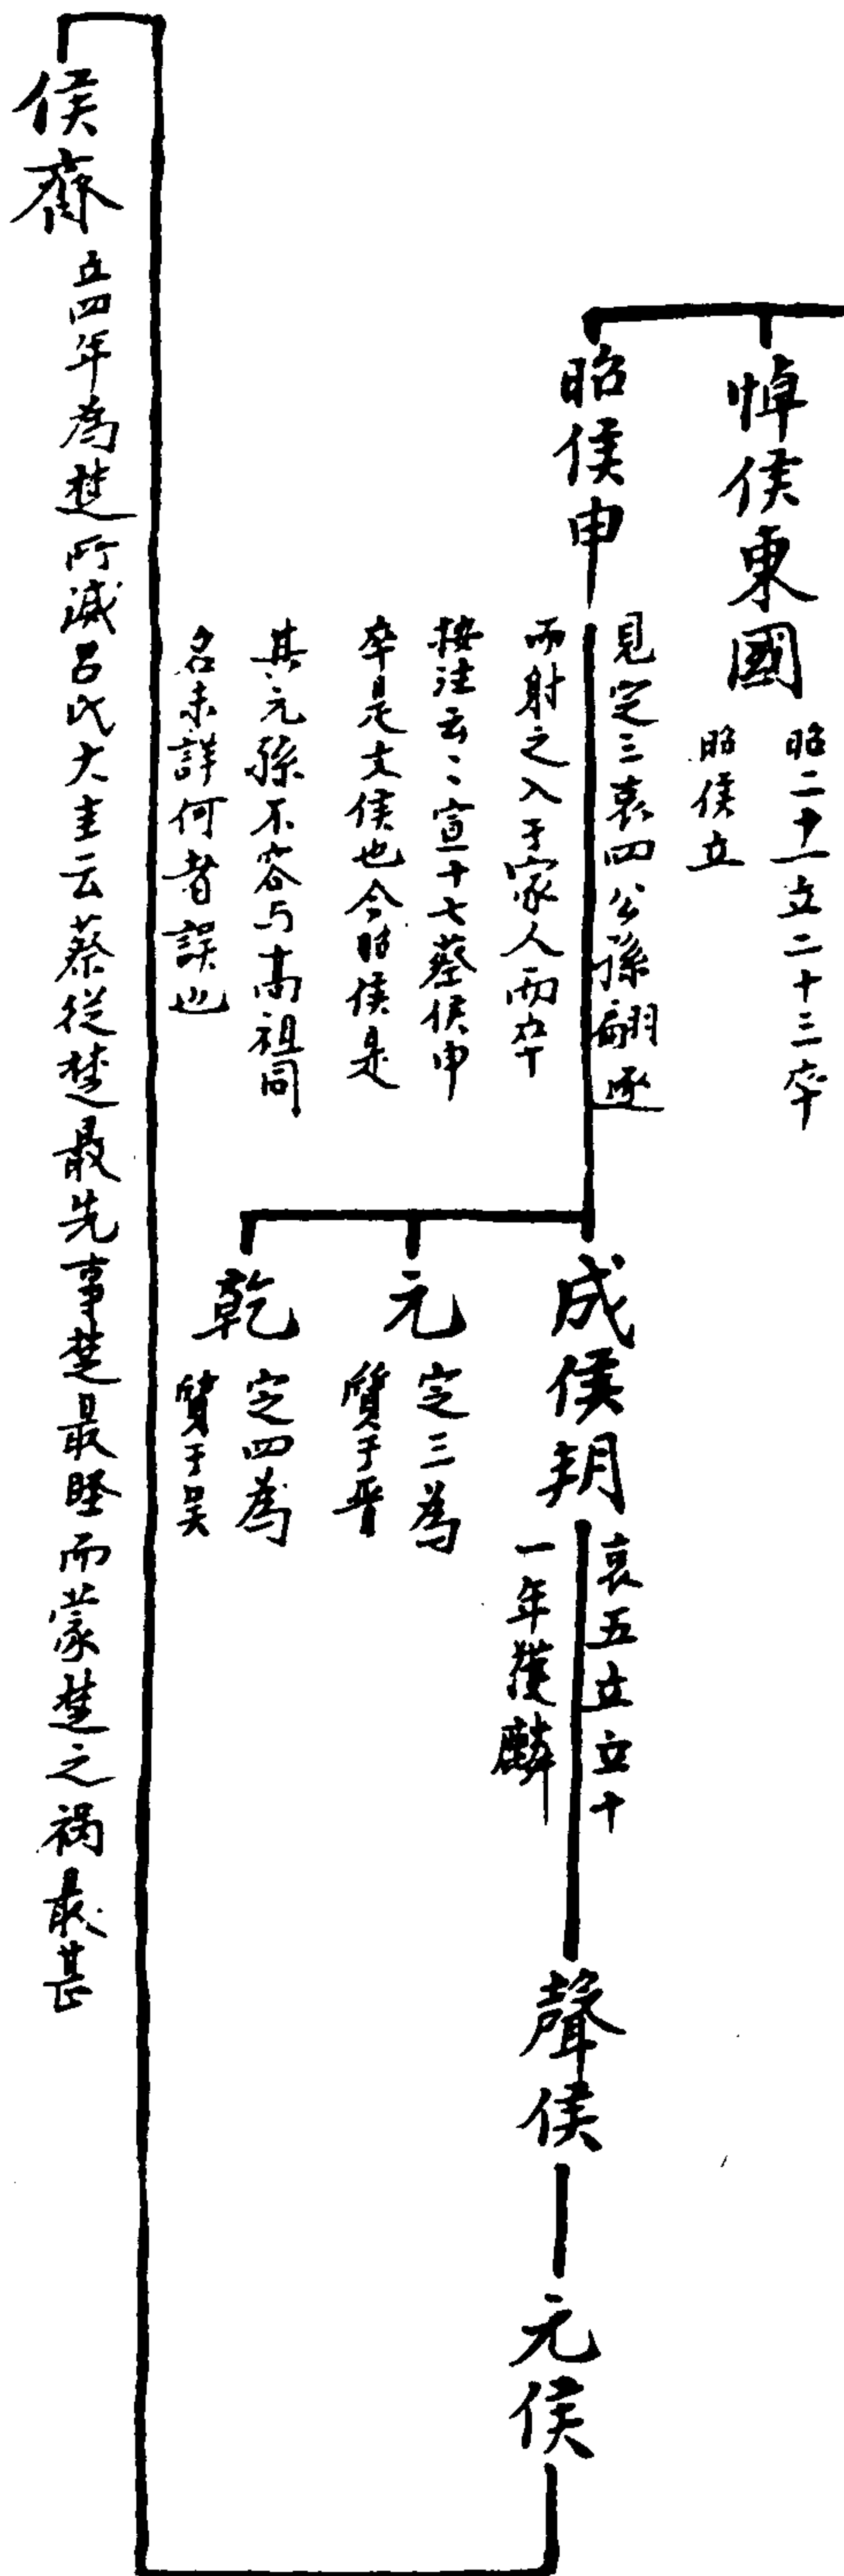 悼侯東國
昭二十一立二十三卒
昭侯立
昭侯申
見定三哀四公孫翩逐
而射之入于家人而卒
按注云〻宣十七蔡侯申
卒是文侯也今昭侯是
其元孫不容与高祖同
名未詳何者誤也
成侯朔
哀五立立十
一年獲麟
元
定三為
質于晋
乾
定四為
質于吴
聲侯
元侯
侯齊
立四年為楚所滅吕氏大圭云蔡從楚最先事楚最堅而蒙楚之祸最甚